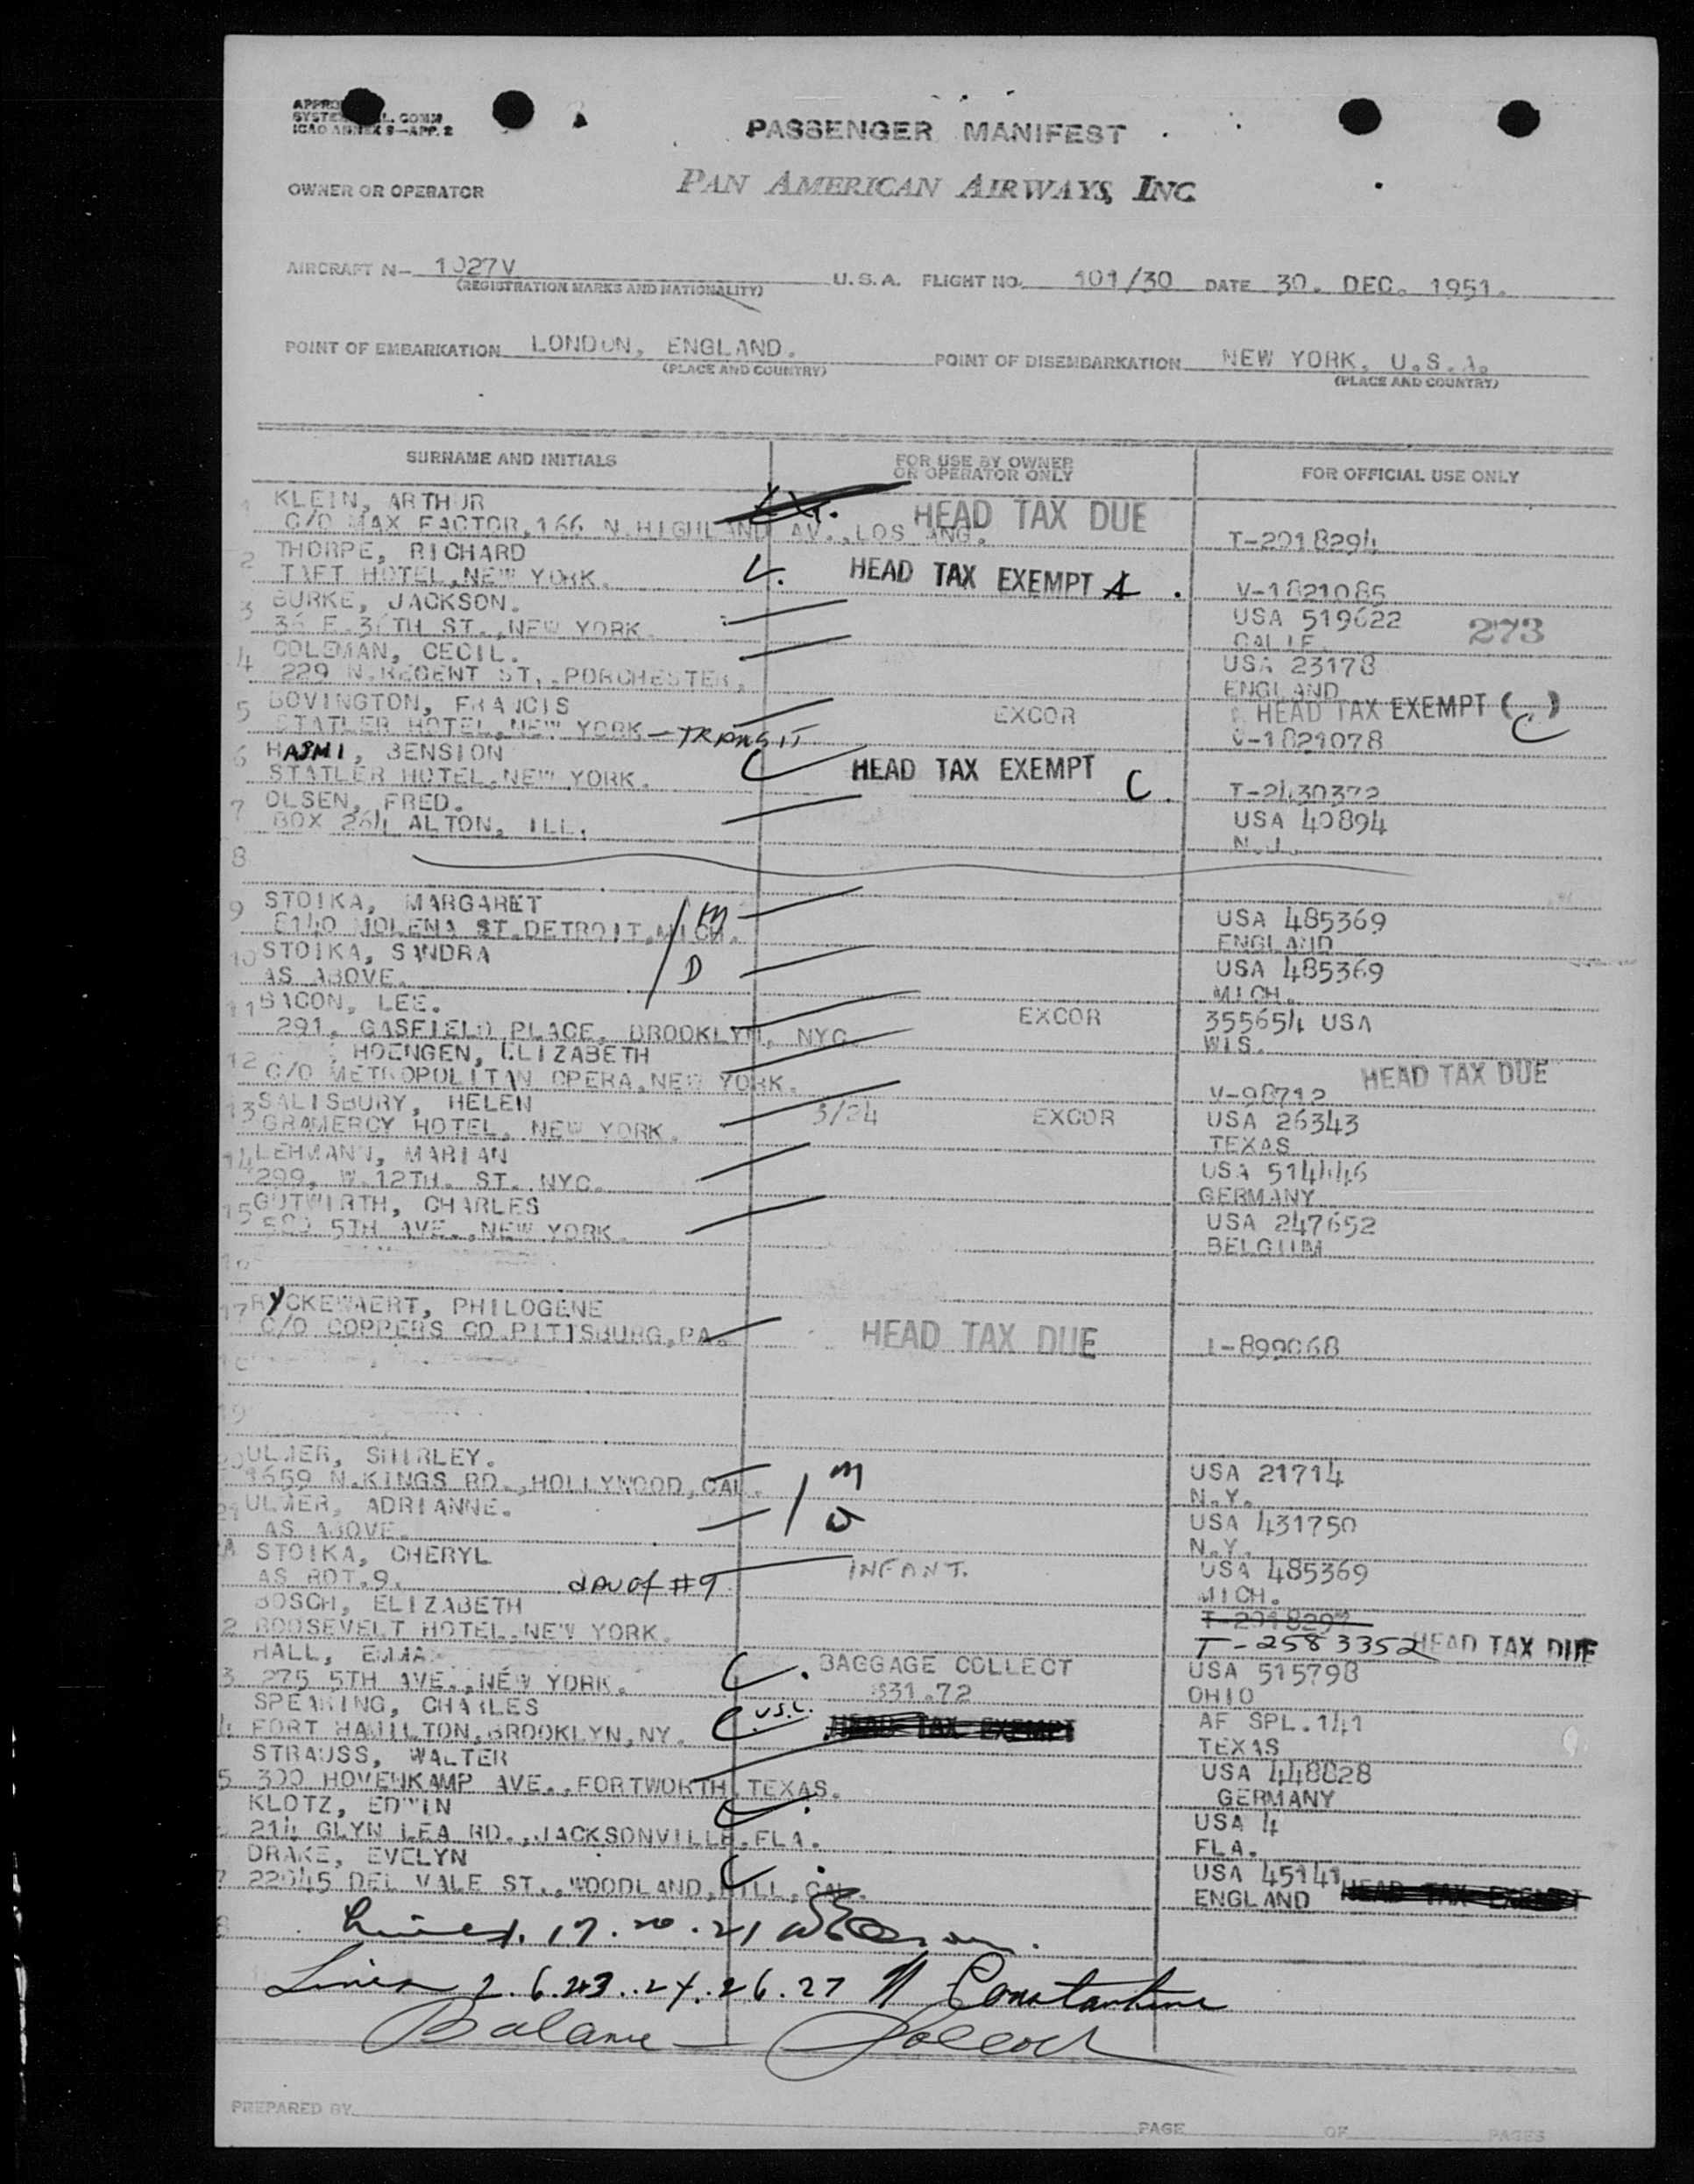 PASSENGER MANIFEST
ICAO ANNEX 9—APP. 2
OWNER OR OPERATOR PAN AMERICAN AIRWAYS, INC.
AIRCRAFT N— 1027V U.S.A. FLIGHT NO. 101/30 DATE 30. DEC. 1951.
(REGISTRATION MARKS AND NATIONALITY)
POINT OF EMBARKATION LONDON, ENGLAND. POINT OF DISEMBARKATION NEW YORK, U.S.A.
(PLACE AND COUNTRY) (PLACE AND COUNTRY)
SURNAME AND INITIALS FOR USE BY OWNER OR OPERATOR ONLY FOR OFFICIAL USE ONLY
1 KLEIN, ARTHUR HEAD TAX DUE
C/O MAX FACTOR, 166 N.HIGHLAND AV., LOS ANG. T-2018294
2 THORPE, RICHARD
TAFT HOTEL, NEW YORK. HEAD TAX EXEMPT A V-1821085
3 BURKE, JACKSON. USA 519622 273
E. ST., NEW YORK. CALIF.
4 COLEMAN, CECIL. USA 23178
229 N.REGENT ST., PORCHESTER. ENGLAND
5 BOVINGTON, FRANCIS EXCOR HEAD TAX EXEMPT (C)
STATLER HOTEL, NEW YORK — TRANSIT V-1821078
6 HAJMI, BENSION HEAD TAX EXEMPT
STATLER HOTEL, NEW YORK. C. T-2430372
7 OLSEN, FRED. USA 40894
BOX 264 ALTON, ILL. N.J.
8
9 STOIKA, MARGARET M USA 485369
MOLENA ST.DETROIT, MICH. ENGLAND
10 STOIKA, SANDRA D USA 485369
AS ABOVE. MICH.
11 BACON, LEE. EXCOR 355654 USA
291. GASFIELD PLACE, BROOKLYN, NYC. WIS.
12 HOENGEN, ELIZABETH HEAD TAX DUE
C/O METROPOLITAN OPERA, NEW YORK. V-98712
13 SALISBURY, HELEN 3/24 EXCOR USA 26343
GRAMERCY HOTEL, NEW YORK. TEXAS
14 LEHMANN, MARIAN USA 514446
299, W.12TH. ST. NYC. GERMANY
15 GUTWIRTH, CHARLES USA 247652
5TH AVE., NEW YORK. BELGIUM
16
17 RYCKEWAERT, PHILOGENE
C/O COPPERS CO.PITTSBURG, PA. HEAD TAX DUE 899068
19
20 ULMER, SHIRLEY. M USA 21714
1659 N.KINGS RD., HOLLYWOOD, CAL. N.Y.
21 ULMER, ADRIANNE. D USA 431750
AS ABOVE. N.Y.
STOIKA, CHERYL INFANT. USA 485369
AS BOT.9. dau of #9 MICH.
BOSCH, ELIZABETH T-2018297
2 ROOSEVELT HOTEL, NEW YORK. T-2583352 HEAD TAX DUE
HALL, EMMA BAGGAGE COLLECT USA 515798
3 275 5TH AVE., NEW YORK. $31.72 OHIO
SPEARING, CHARLES U.S.C. AF SPL.141
4 FORT HAMILTON, BROOKLYN, NY. HEAD TAX EXEMPT TEXAS
STRAUSS, WALTER USA 448828
5 300 HOVENKAMP AVE., FORTWORTH, TEXAS. GERMANY
KLOTZ, EDWIN USA 4
214 GLYN LEA RD., JACKSONVILLE, FLA. FLA.
DRAKE, EVELYN USA 45141
7 22045 DEL VALE ST., WOODLAND, HILL, CAL. ENGLAND HEAD TAX EXEMPT
Lines 1. 17. 20. 21
Lines 2. 6. 23. 24. 26. 27 Constantine
Balance
PREPARED BY PAGE OF PAGES